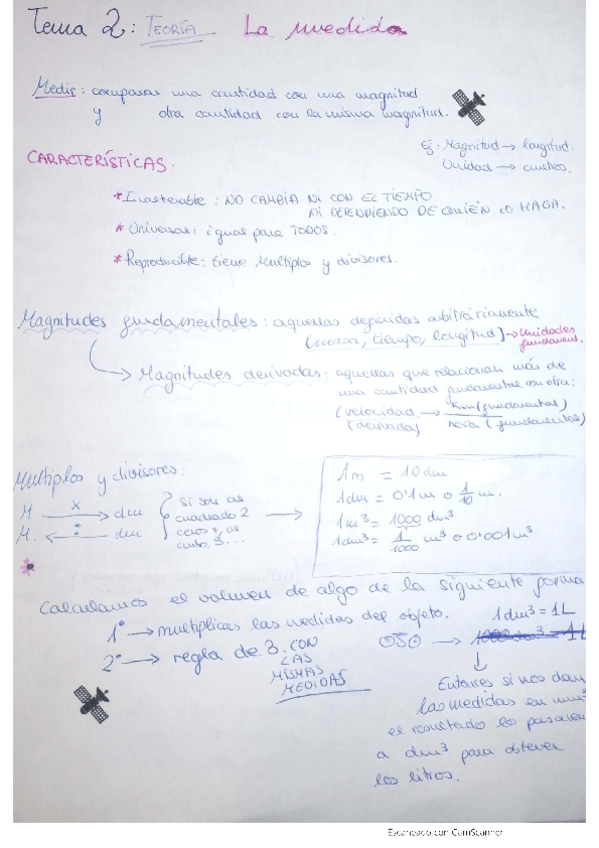 Tema 2: TEORÍA La medida
Medir: comparar una cantidad con una magnitud
y otra cantidad con la misma magnitud.
Ej: Magnitud → longitud.
Unidad → metros.
CARACTERÍSTICAS.
* Inalterable: NO CAMBIA NI CON EL TIEMPO
NI DEPENDIENDO DE QUIÉN LO HAGA.
* Universal: igual para TODOS.
* Reproducible: tiene multiplos y divisores.
Magnitudes fundamentales: aquellas definidas arbitrariamente
(masa, tiempo, longitud) → Unidades
fundament.
→ Magnitudes derivadas: aquellas que relacionan más de
una cantidad fundamental con otra:
(velocidad → km (fundamental)
(derivada) hora (fundamental)
Multiplos y divisores:
M x→ dm
M. ←: dm
Si son al
cuadrado 2
ceros, al
cubo, 3...
1m = 10dm
1dm = 0'1m o 1/10 m.
1m³ = 1000 dm³
1dm³ = 1/1000 m³ o 0'001m³
*
Calculamos el volumen de algo de la siguiente forma
1º → multiplicas las medidas del objeto.
2º → regla de 3. CON
LAS
MISMAS
MEDIDAS
OJO → 1dm³ = 1L
Entonces si nos dan
las medidas en mm³
el resultado lo pasaremos
a dm³ para obtener
los litros.
Escaneado con CamScanner